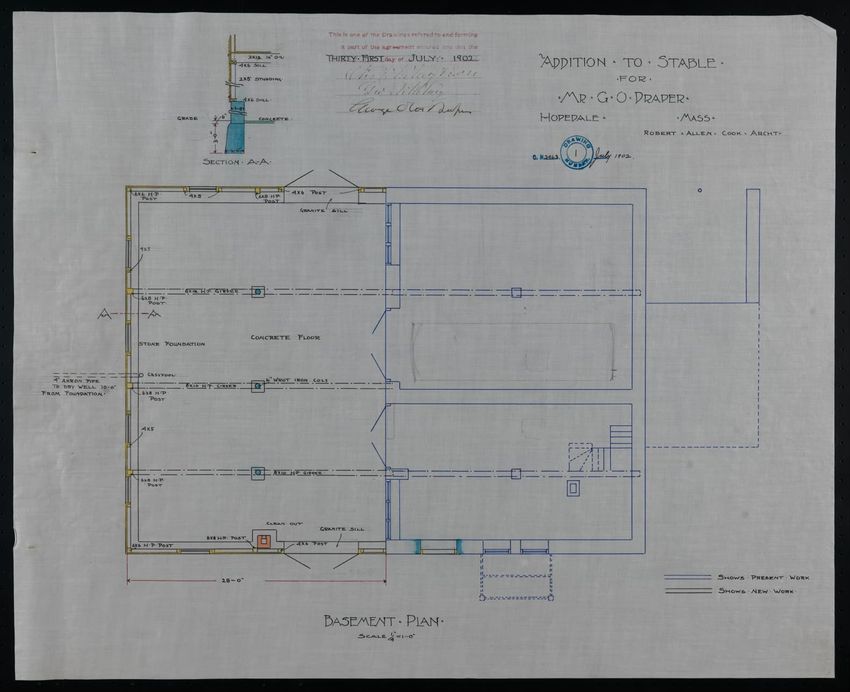 This is one of the Drawings referred to and forming
a part of the agreement entered into this the
THIRTY·FIRST day of JULY· 1902
ADDITION · TO · STABLE ·
· FOR ·
· MR · G · O · DRAPER ·
HOPEDALE · · MASS ·
ROBERT · ALLEN · COOK · ARCHT ·
DRAWING
1
NUMBER
July 1902.
4X6 SILL
2X5 STUDDING
4X6 SILL
GRADE
CONCRETE
SECTION · A-A ·
6X6 H·P·
POST
4X5
6X8 H·P·
POST
4X6 POST
GRANITE SILL
4X5
H·P· GIRDER
6X8 H·P·
POST
A A
STONE FOUNDATION
CONCRETE FLOOR
CESSPOOL
4" AKRON PIPE
TO DRY WELL 10'-0"
FROM FOUNDATION·
8X10 H·P· GIRDER
6" WROT IRON COLS
6X8 H·P·
POST
4X5
8X10 H·P· GIRDER
6X8 H·P·
POST
CLEAN OUT
GRANITE SILL
6X6 H·P· POST
6X8 H·P· POST
4X6 POST
28'-0"
SHOWS PRESENT WORK
SHOWS NEW WORK
BASEMENT · PLAN ·
SCALE ¼"=1'-0"